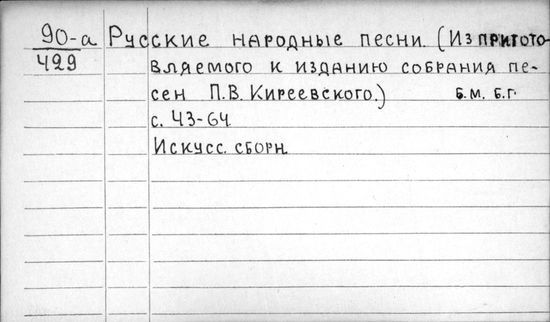 90-а Русские народные песни. (Из пригото-
429 вляемого к изданию собрания пе-
сен П.В. Киреевского.) б.м. б.г.
с. 43-64
Искусс. сборн.